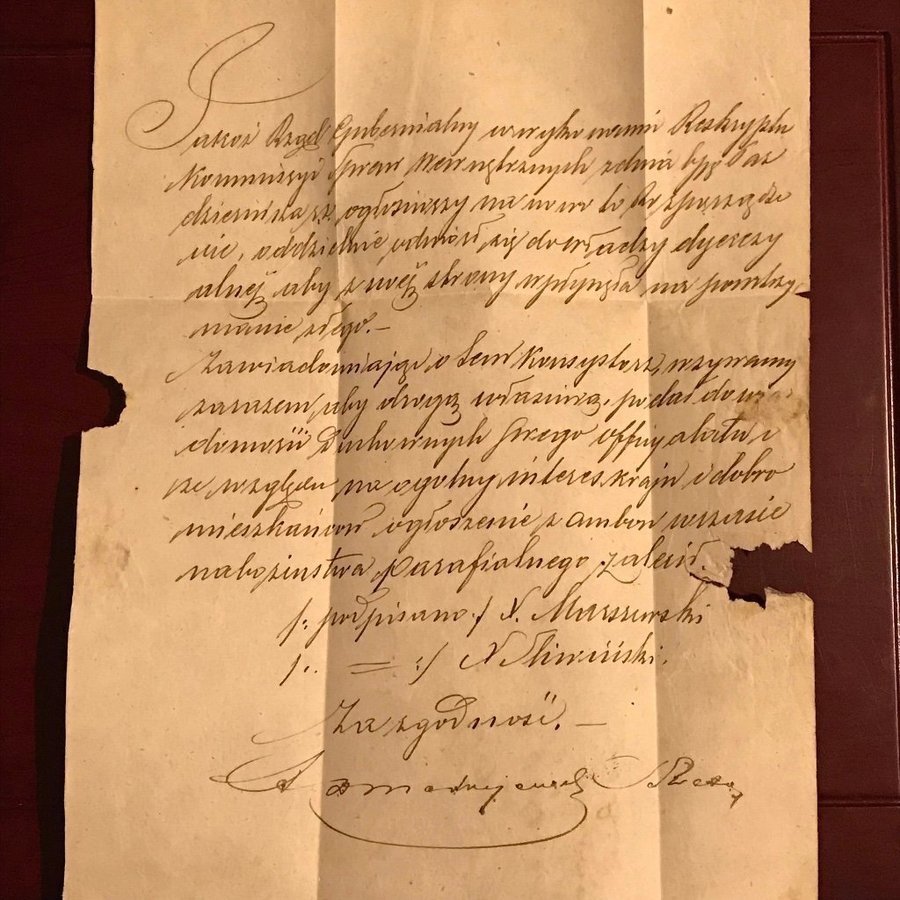 Jakoż Rząd Gubernialny w wykonaniu Reskryptu
Kommissyi Spraw Wewnętrznych z dnia Paź
dziernika ogłosiwszy na nowo to Rozporządze
nie, oddzielnie odnosi się do władzy dyecezy
alnéj aby z swéj strony wpłynęła na powstrzy
manie złego.—
Zawiadomiając o tem Konsystorz, wzywamy
zarazem, aby drogą właściwą, podał do wia
domości Duchownych swego offycyałatu i
ze względu na ogólny interes kraju i dobro
mieszkańców ogłoszenie z ambon w czasie
nabożeństwa parafialnego zalecił.
/: podpisano :/ N. Marszewski
/: = :/ N Śliwiński.
Za zgodność.—